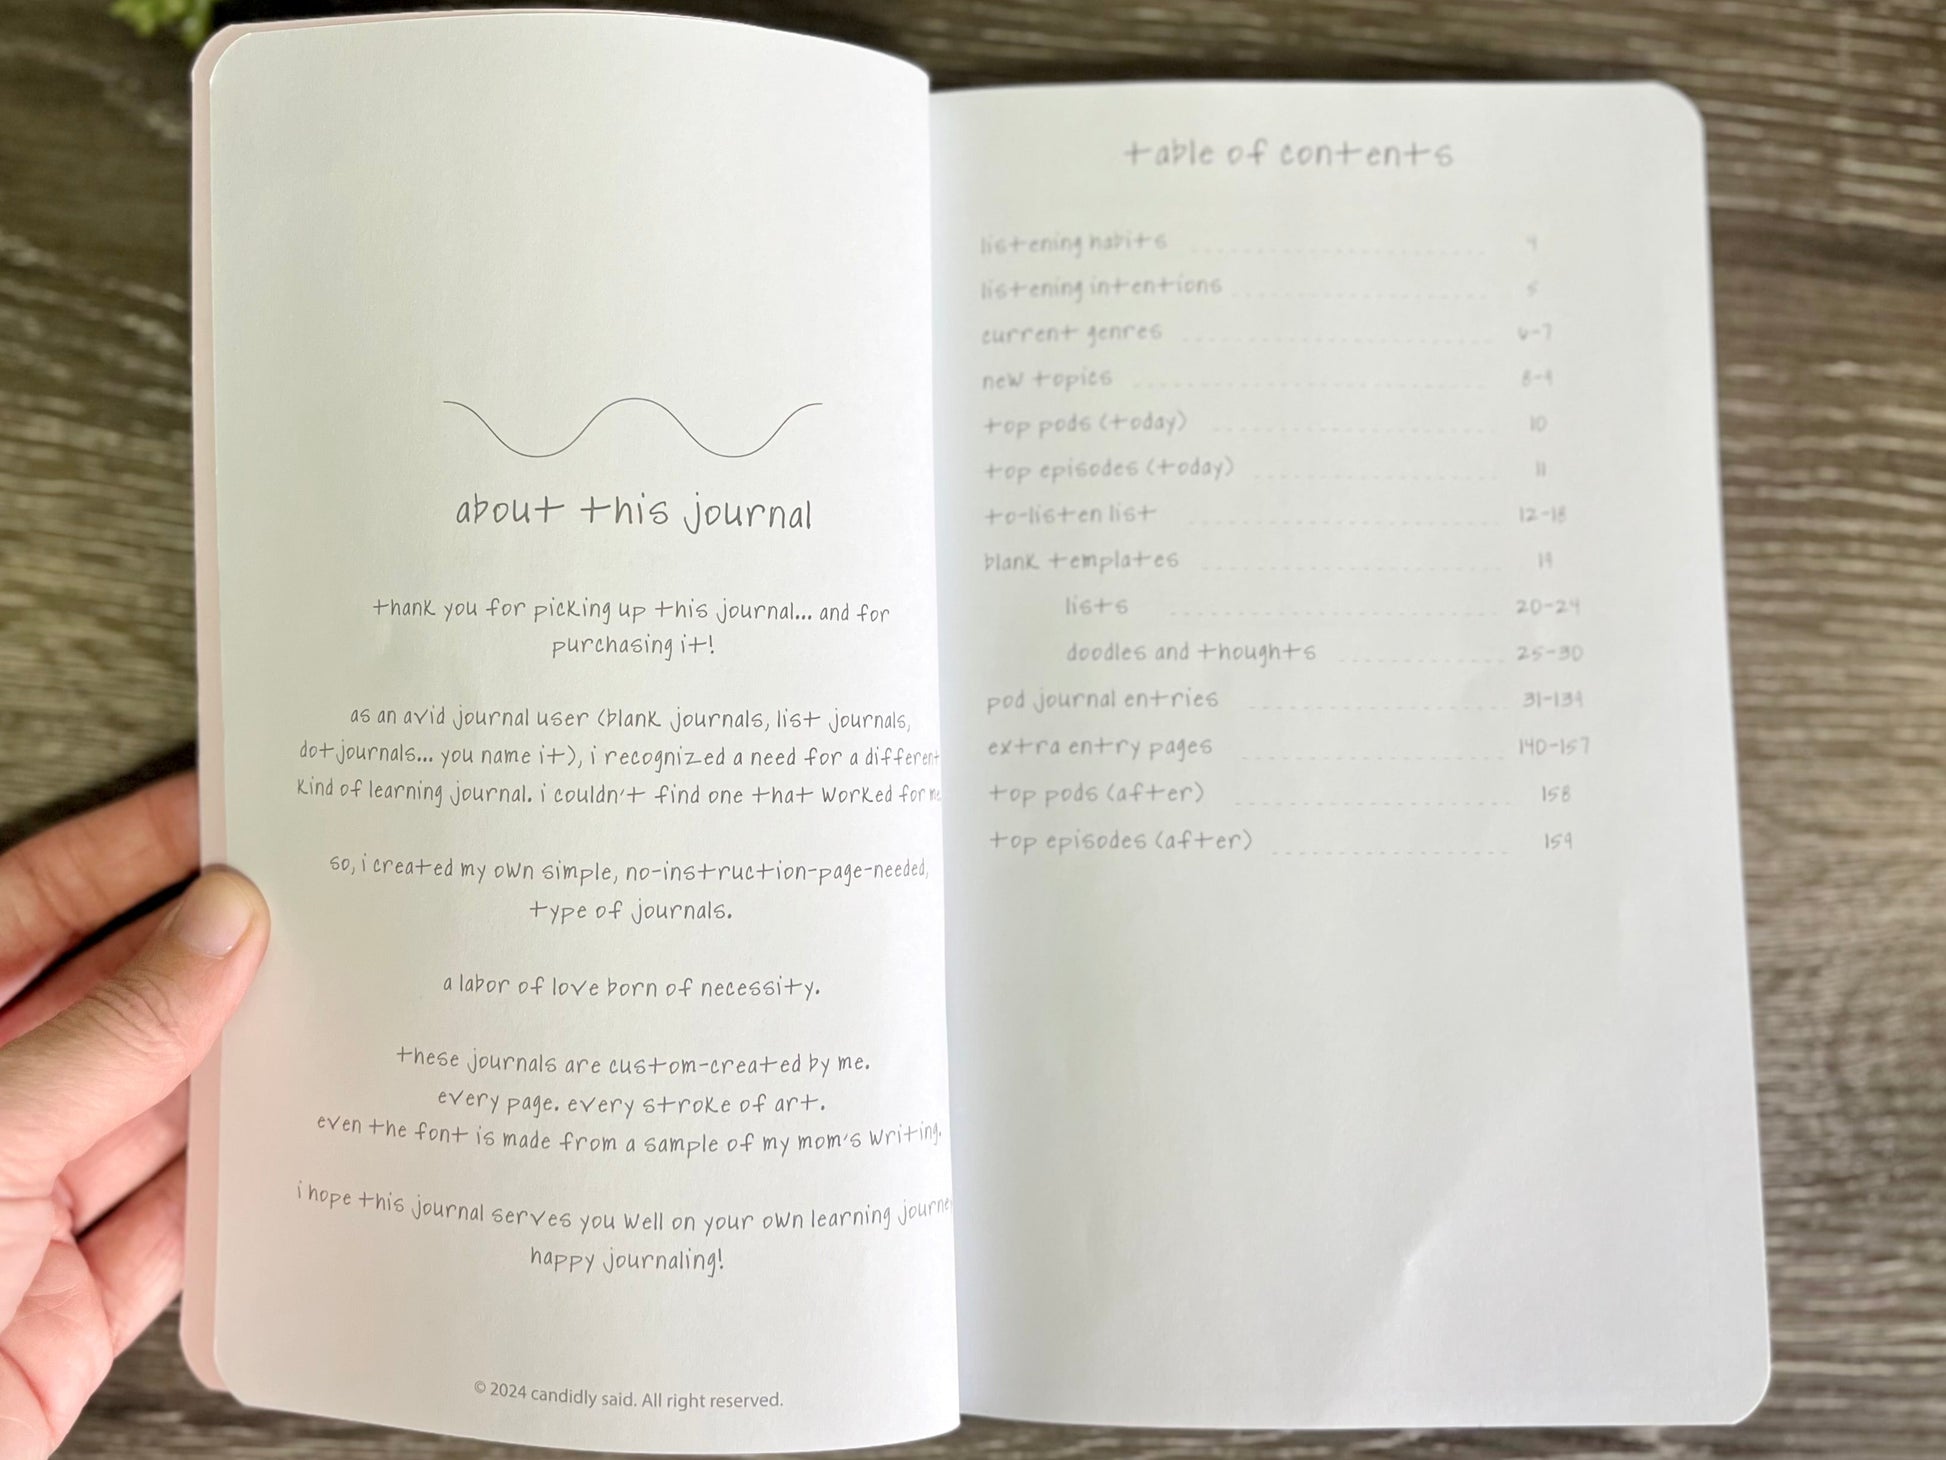 about this journal
thank you for picking up this journal... and for
purchasing it!
as an avid journal user (blank journals, list journals,
dot journals... you name it), i recognized a need for a different
kind of learning journal. i couldn't find one that worked for me.
so, i created my own simple, no-instruction-page-needed,
type of journals.
a labor of love born of necessity.
these journals are custom-created by me.
every page. every stroke of art.
even the font is made from a sample of my mom's writing.
i hope this journal serves you well on your own learning journey
happy journaling!
© 2024 candidly said. All right reserved.
table of contents
listening habits 4
listening intentions 5
current genres 6-7
new topics 8-9
top pods (today) 10
top episodes (today) 11
to-listen list 12-18
blank templates 19
lists 20-24
doodles and thoughts 25-30
pod journal entries 31-139
extra entry pages 140-157
top pods (after) 158
top episodes (after) 159